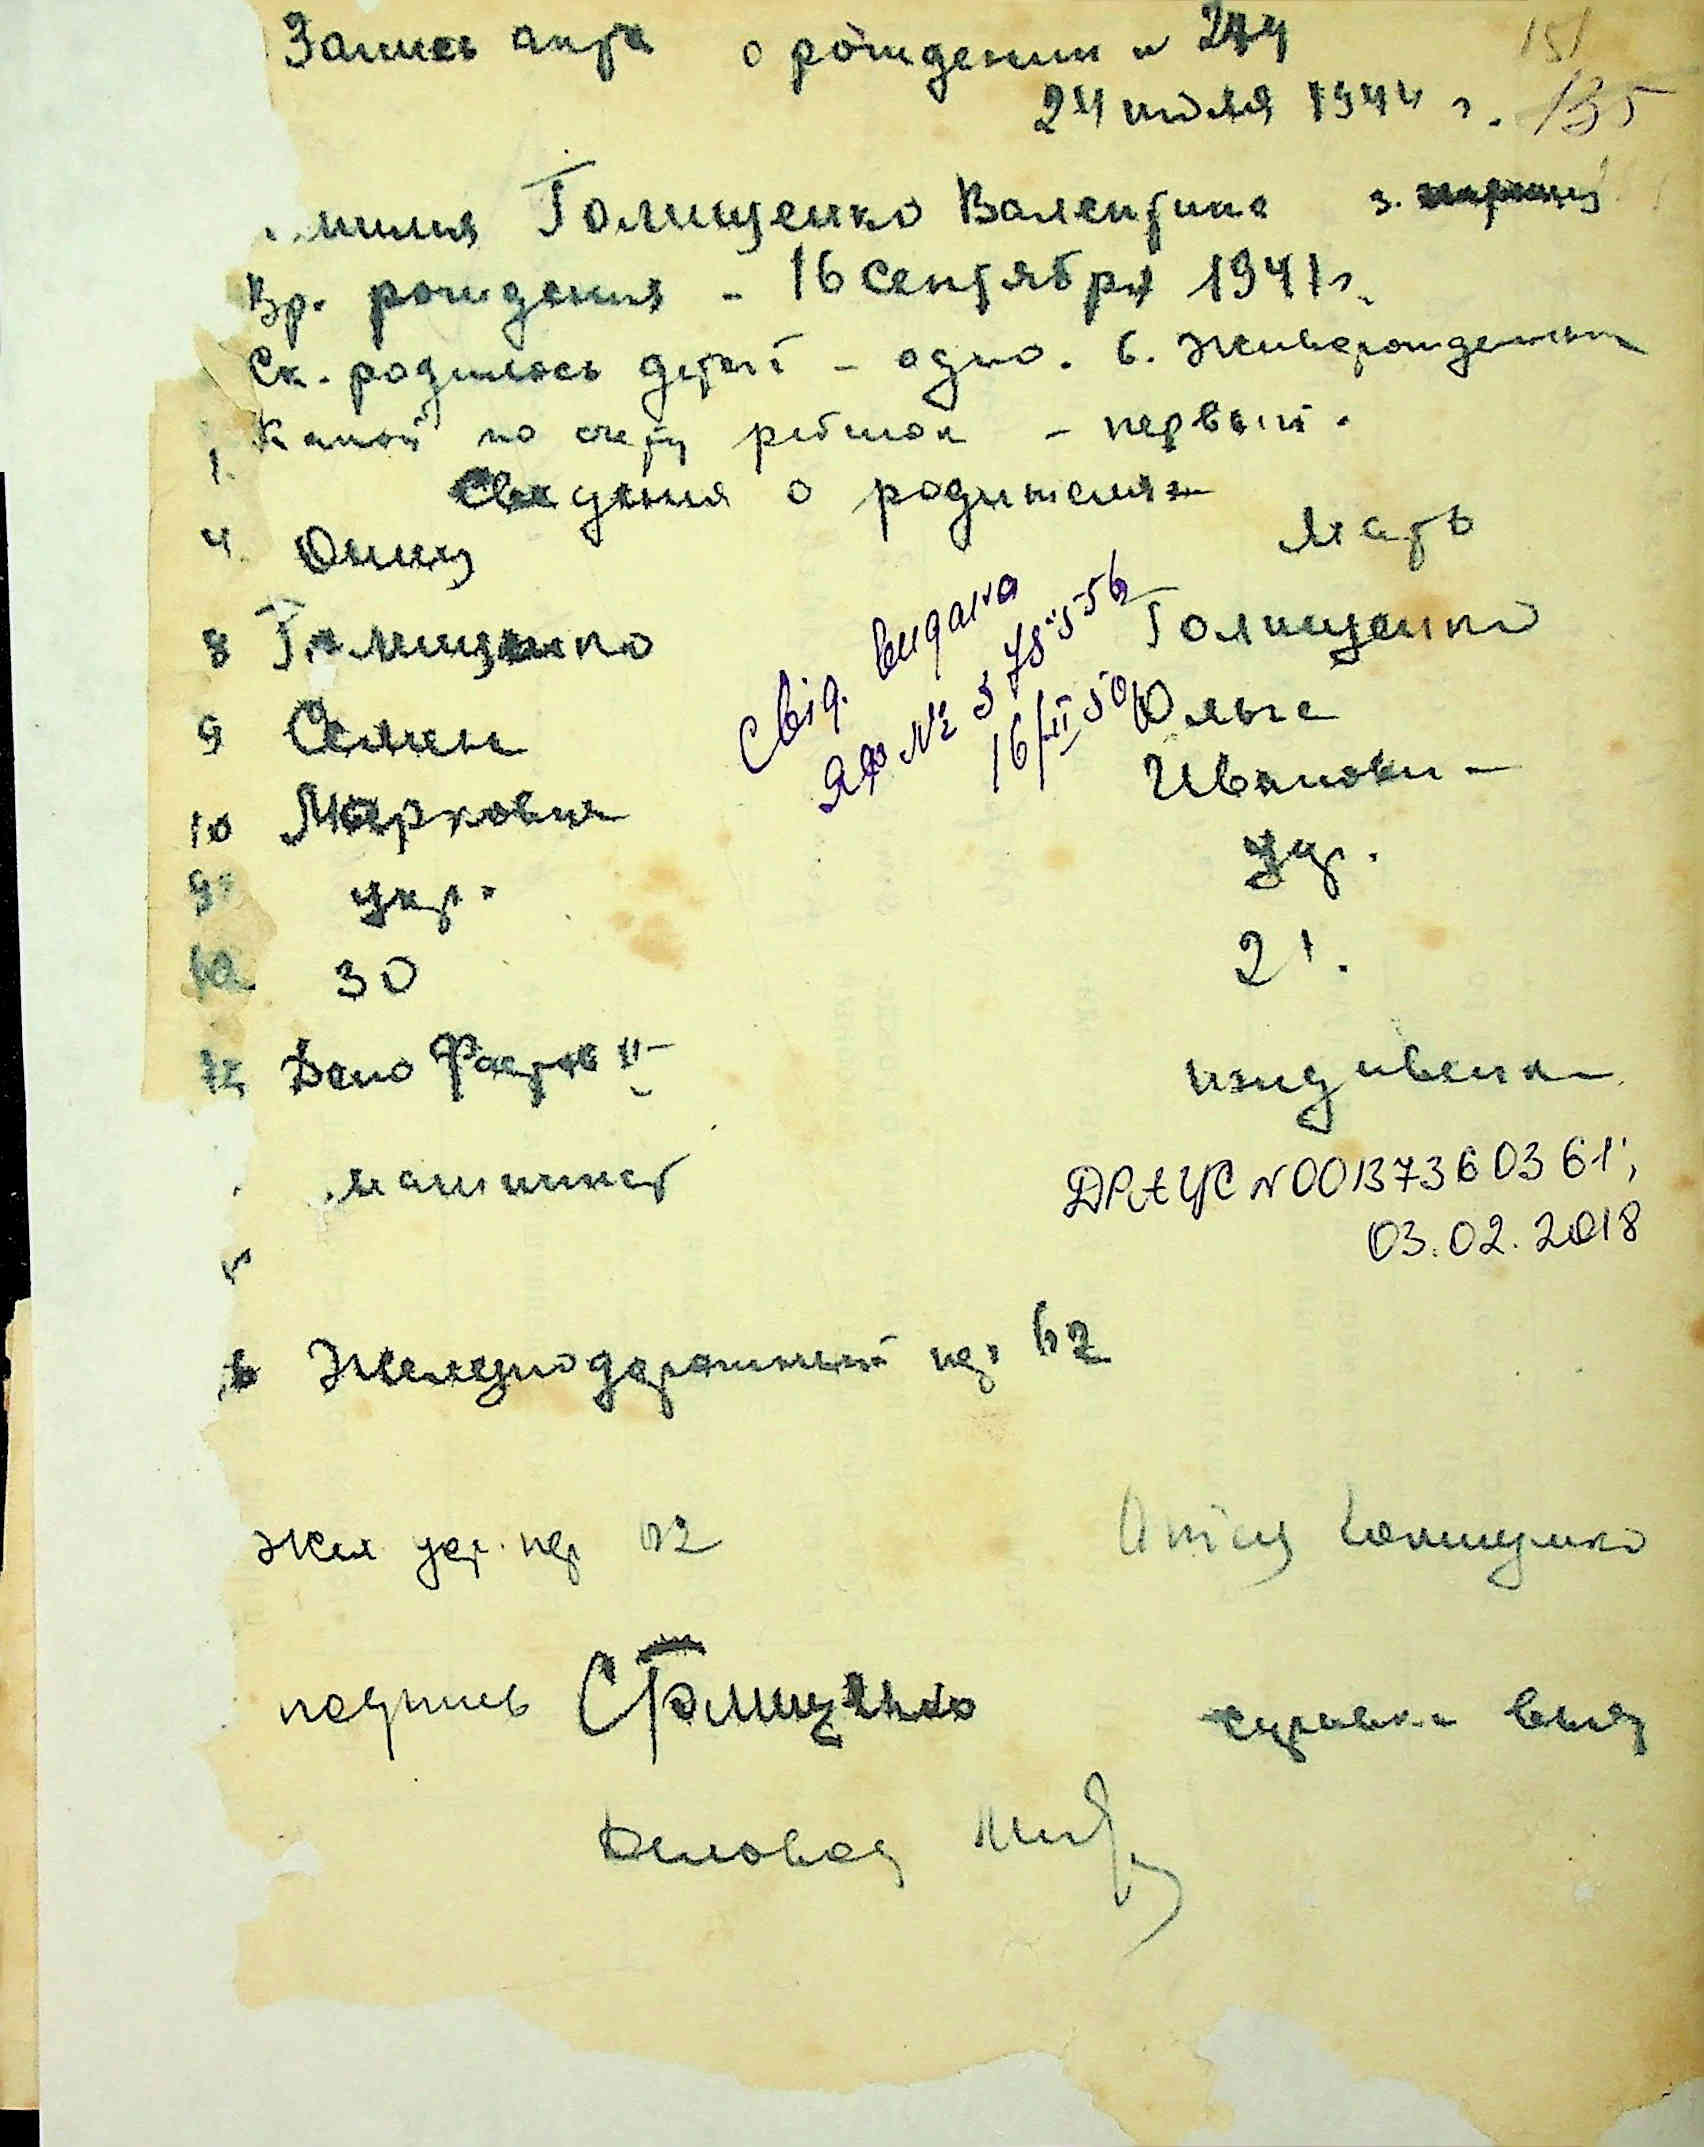 Запись акта о рождении N 244
151
24 июля 1944 г. 135
милия Голищенко Валентина 3.
Вр. рождения - 16 сентября 1941 г.
Ск. родилось детей - одно. 6. Живорожденным
Какой по счету ребенок - первый.
1.
Сведения о родителях
4. Отец Мать
8 Голищенко Голищенко
9 Семен Ольга
10 Маркович Ивановн-
9 укр. укр.
10 30 21.
12 Депо Фастов II иждивенка
машинист
Свід. видана
ЯЮ № 375556
16/II 50
ДРАЦС N 00137360361,
03.02.2018
Железнодорожный пер 62
Жел дор. пер 62 Отец Голищенко
подпись СГолищенко справка выд
Деловод